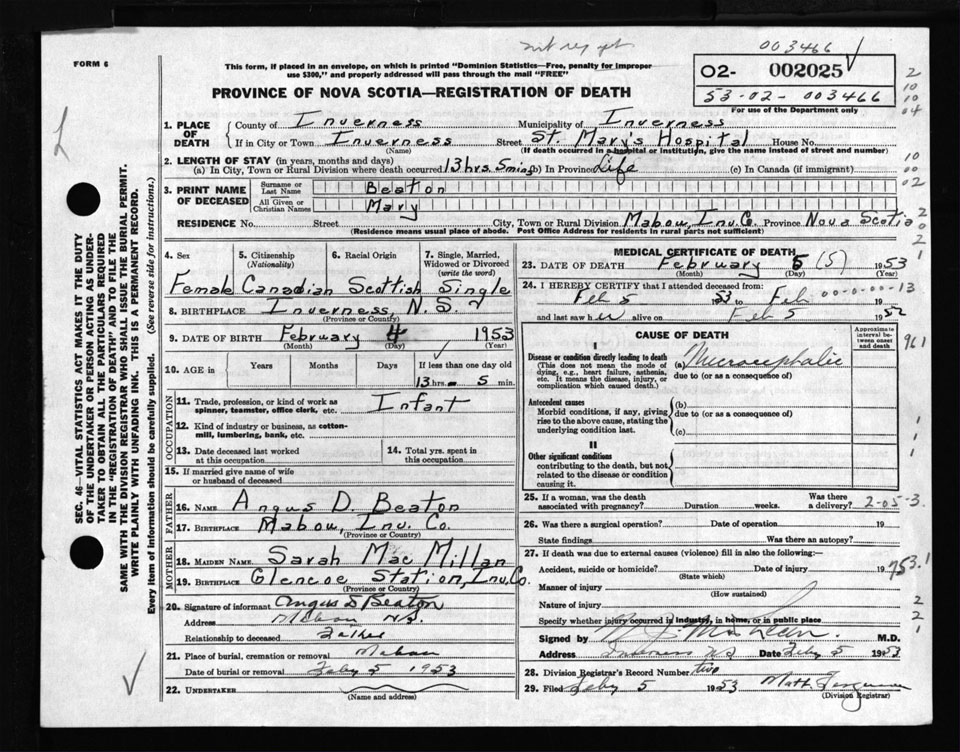 003466
FORM 6
This form, if placed in an envelope, on which is printed "Dominion Statistics—Free, penalty for improper
use $300," and properly addressed will pass through the mail "FREE"
02- 002025
53-02-003466
For use of the Department only
PROVINCE OF NOVA SCOTIA—REGISTRATION OF DEATH
1. PLACE OF DEATH County of Inverness Municipality of Inverness
If in City or Town Inverness Street St. Mary's Hospital House No.
(Name) (If death occurred in a hospital or institution, give the name instead of street and number)
2. LENGTH OF STAY (in years, months and days)
(a) In City, Town or Rural Division where death occurred 13 hrs. 5 mins (b) In Province Life (c) In Canada (if immigrant)
3. PRINT NAME OF DECEASED Surname or Last Name Beaton
All Given or Christian Names Mary
RESIDENCE No. Street City, Town or Rural Division Mabou, Inv. Co. Province Nova Scotia
(Residence means usual place of abode. Post Office Address for residents in rural parts not sufficient)
4. Sex 5. Citizenship (Nationality) 6. Racial Origin 7. Single, Married, Widowed or Divorced (write the word)
Female Canadian Scottish Single
8. BIRTHPLACE Inverness, N.S.
(Province or Country)
9. DATE OF BIRTH February 4 1953
(Month) (Day) (Year)
10. AGE in Years Months Days If less than one day old
13 hrs. 5 min.
OCCUPATION
11. Trade, profession, or kind of work as spinner, teamster, office clerk, etc. Infant
12. Kind of industry or business, as cotton-mill, lumbering, bank, etc.
13. Date deceased last worked at this occupation 14. Total yrs. spent in this occupation
15. If married give name of wife or husband of deceased
FATHER
16. Name Angus D. Beaton
17. Birthplace Mabou, Inv. Co.
(Province or Country)
MOTHER
18. MAIDEN NAME Sarah Mac Millan
19. BIRTHPLACE Glencoe Station, Inv. Co.
(Province or Country)
20. Signature of informant Angus D Beaton
Address Mabou N.S.
Relationship to deceased Father
21. Place of burial, cremation or removal Mabou
Date of burial or removal Feby 5 1953
22. UNDERTAKER
(Name and address)
MEDICAL CERTIFICATE OF DEATH
23. DATE OF DEATH February 5 (5) 1953
(Month) (Day) (Year)
24. I HEREBY CERTIFY that I attended deceased from:
Feb 5 1953 to Feb 19
00-0-00-13
and last saw her alive on Feb 5 1952
CAUSE OF DEATH
Approximate interval between onset and death
I
Disease or condition directly leading to death
(This does not mean the mode of dying, e.g., heart failure, asthenia, etc. It means the disease, injury, or complication which caused death.)
(a) Microcephalic
due to (or as a consequence of)
Antecedent causes
Morbid conditions, if any, giving rise to the above cause, stating the underlying condition last.
(b)
due to (or as a consequence of)
(c)
II
Other significant conditions
contributing to the death, but not related to the disease or condition causing it.
25. If a woman, was the death associated with pregnancy? Duration weeks. Was there a delivery? 2-05-3
26. Was there a surgical operation? Date of operation 19
State findings Was there an autopsy?
27. If death was due to external causes (violence) fill in also the following:—
Accident, suicide or homicide? Date of injury 19
(State which)
753.1
Manner of injury
(How sustained)
Nature of injury
Specify whether injury occurred in industry, in home, or in public place
Signed by M.D.
Address Inverness NS Date Feby 5 1953
28. Division Registrar's Record Number two
29. Filed Feby 5 1953 Matt Ferguson
(Division Registrar)
SEC. 46—VITAL STATISTICS ACT MAKES IT THE DUTY
OF THE UNDERTAKER OR PERSON ACTING AS UNDER-
TAKER TO OBTAIN ALL THE PARTICULARS REQUIRED
IN THE "REGISTRATION OF DEATH" AND TO FILE THE
SAME WITH THE DIVISION REGISTRAR WHO SHALL ISSUE THE BURIAL PERMIT.
WRITE PLAINLY WITH UNFADING INK. THIS IS A PERMANENT RECORD.
Every item of information should be carefully supplied. (See reverse side for instructions.)
2
10
10
04
10
00
02
2
02
2
1
961
1
1
1
2
2
1